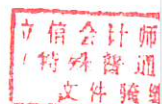 立信会计师
(特殊普通
文件骑缝